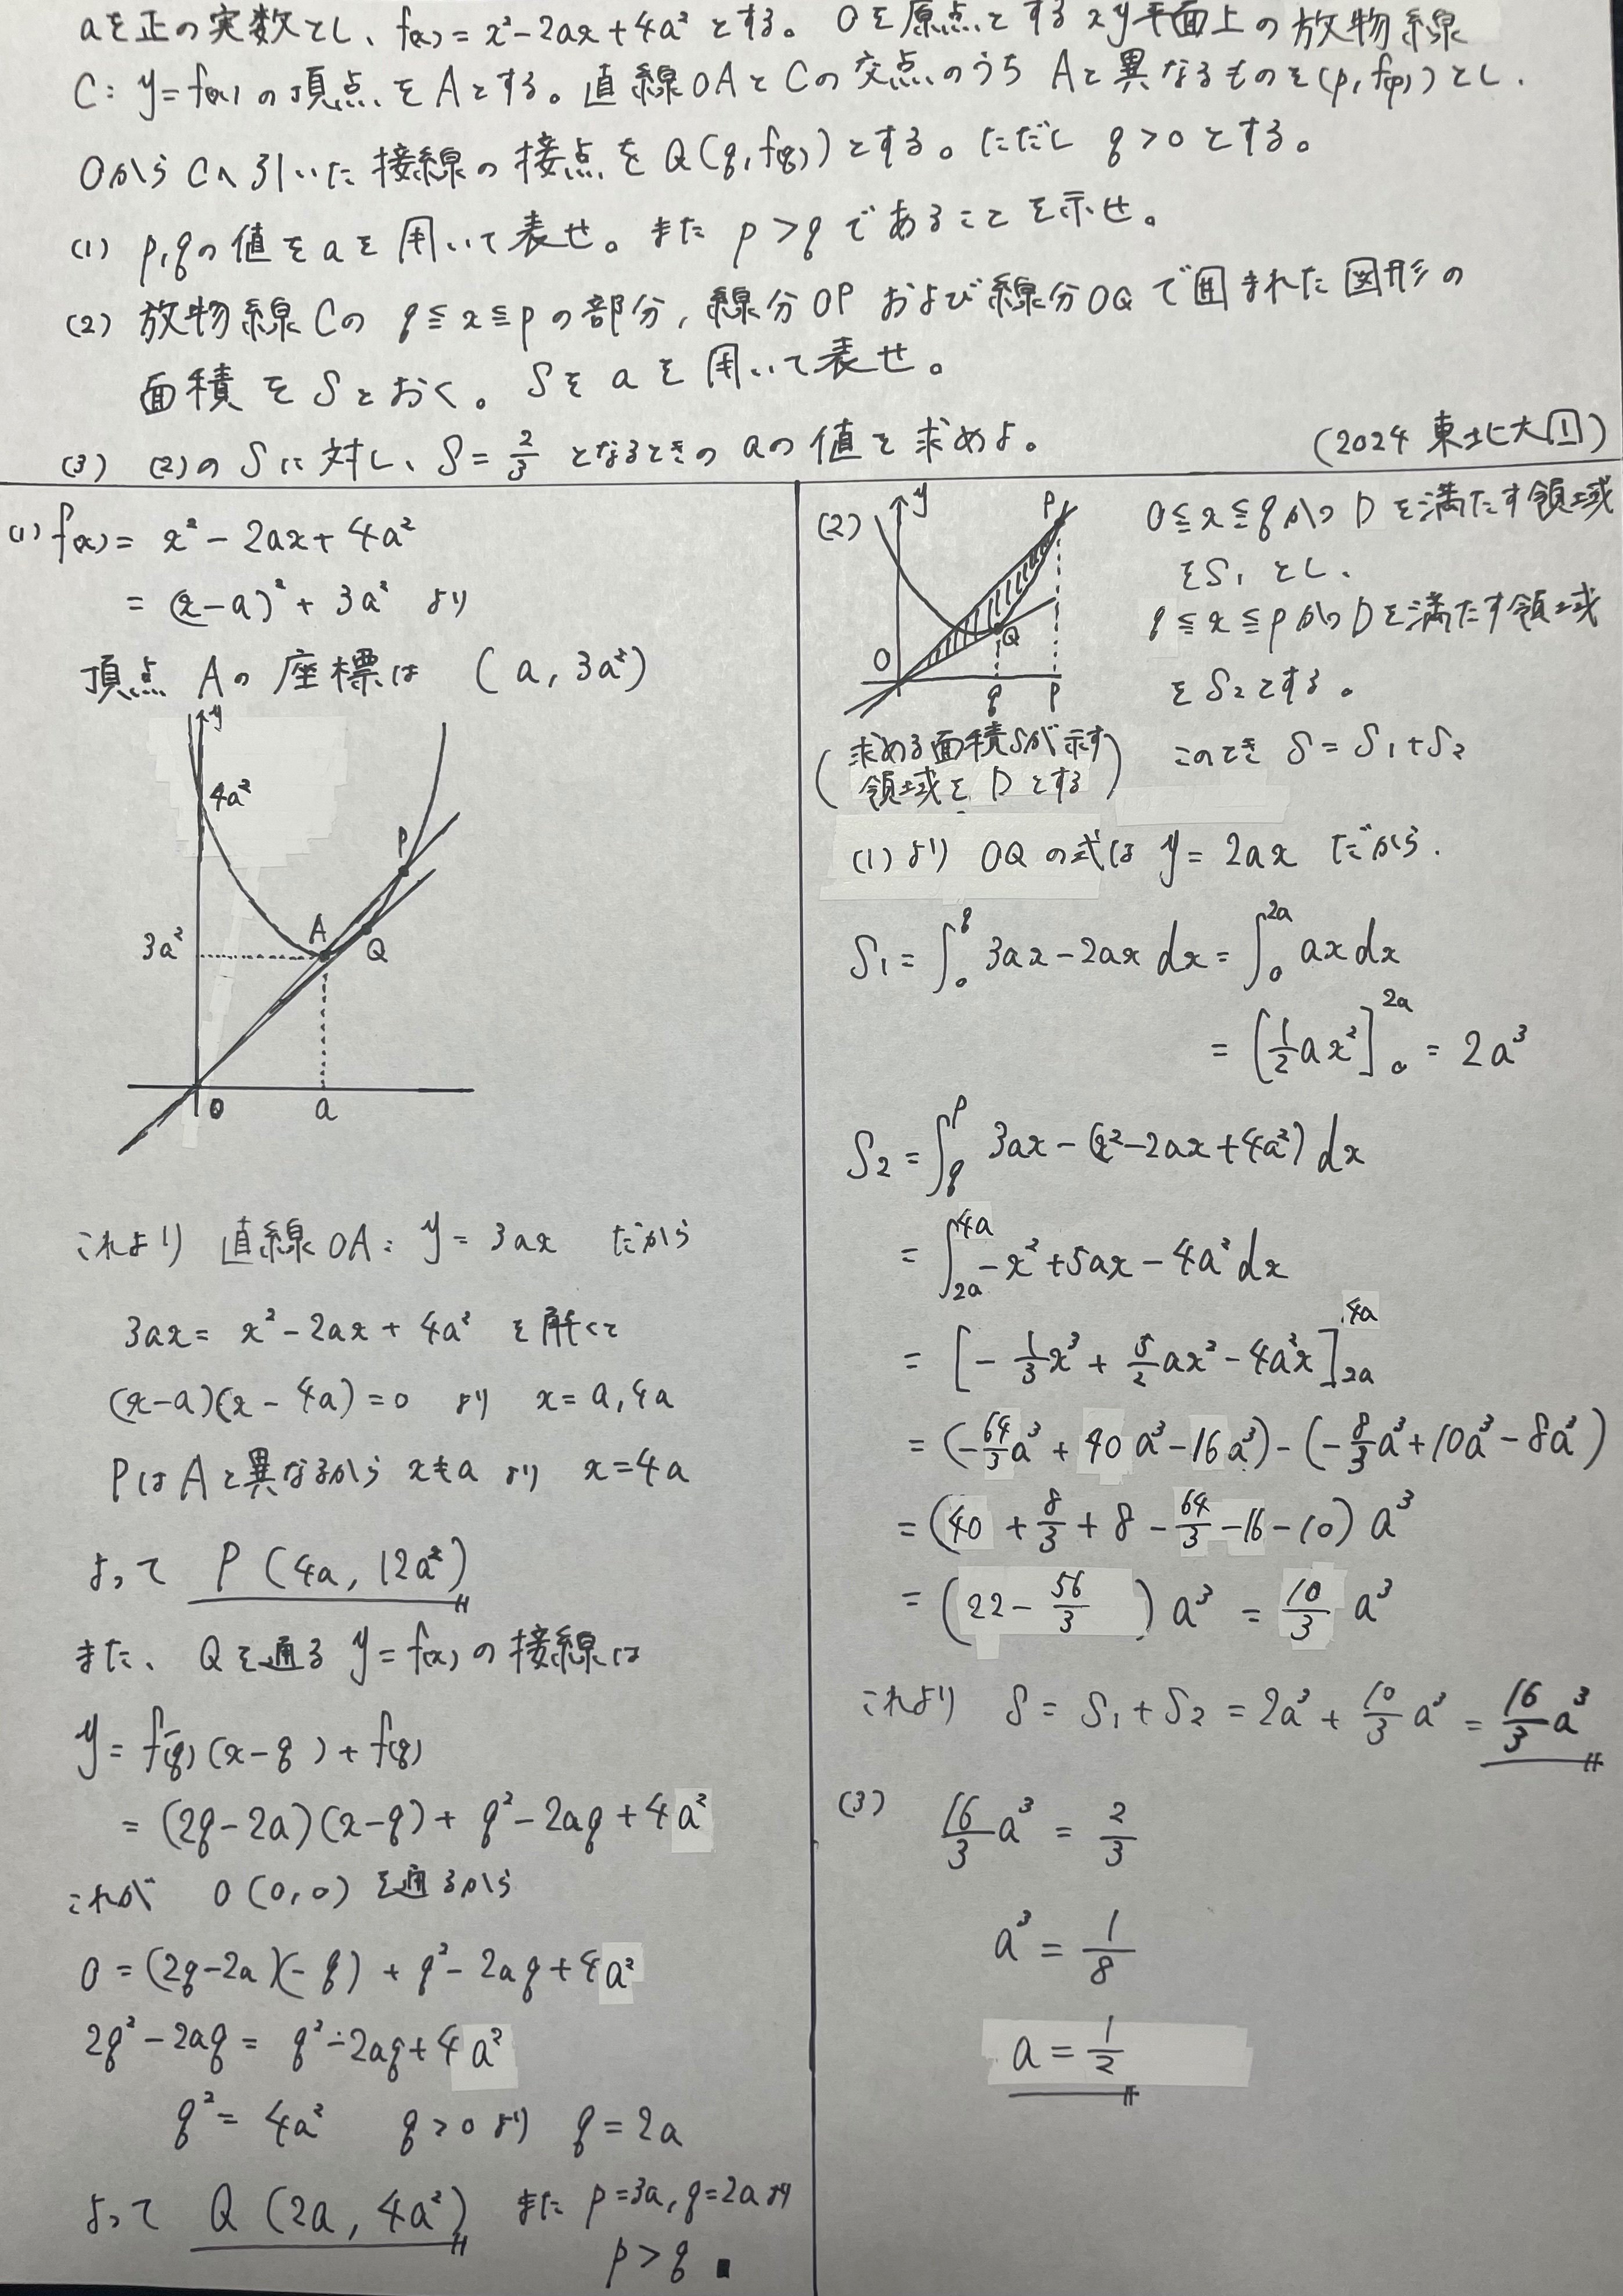 aを正の実数とし、f(x) = x²-2ax+4a² とする。 Oを原点とするxy平面上の放物線
C: y=f(x) の頂点をAとする。直線OAとCの交点のうちAと異なるものを(p, f(p))とし.
OからCへ引いた接線の接点をQ(q, f(q))とする。ただし q>0 とする。
(1) p,qの値をaを用いて表せ。また p>q であることを示せ。
(2) 放物線Cの q≦x≦p の部分, 線分OP および線分OQで囲まれた図形の
面積をSとおく。Sをaを用いて表せ。
(3) (2)のSに対し、S=2/3 となるときのaの値を求めよ。 (2024 東北大1)
(1) f(x) = x²-2ax+4a²
= (x-a)²+3a² より
頂点Aの座標は (a, 3a²)
y
4a²
P
A
3a²
Q
O a
これより 直線OA: y=3ax だから
3ax = x²-2ax+4a² を解くと
(x-a)(x-4a)=0 より x=a,4a
PはAと異なるから x≠a より x=4a
よって P(4a, 12a²)
また、Qを通る y=f(x) の接線は
y = f'(q)(x-q)+f(q)
= (2q-2a)(x-q)+q²-2aq+4a²
これが O(0,0) を通るから
0 = (2q-2a)(-q)+q²-2aq+4a²
2q²-2aq = q²-2aq+4a²
q² = 4a² q>0より q=2a
よって Q(2a, 4a²) また p=3a, q=2aより
p>q ■
(2)
y
P
Q
O
q p
(求める面積Sが示す
領域をDとする)
0≦x≦qかつDを満たす領域
をS₁とし、
q≦x≦pかつDを満たす領域
をS₂とする。
このとき S=S₁+S₂
(1)より OQの式は y=2ax だから.
S₁ = ∫₀^q 3ax-2ax dx = ∫₀^2a ax dx
= [1/2 ax²]₀^2a = 2a³
S₂ = ∫_q^p 3ax-(x²-2ax+4a²) dx
= ∫_2a^4a -x²+5ax-4a² dx
= [-1/3 x³ + 5/2 ax² - 4a²x]_2a^4a
= (-64/3 a³ + 40a³ - 16a³) - (-8/3 a³ + 10a³ - 8a³)
= (40 + 8/3 + 8 - 64/3 - 16 - 10) a³
= (22 - 56/3) a³ = 10/3 a³
これより S = S₁+S₂ = 2a³ + 10/3 a³ = 16/3 a³
(3) 16/3 a³ = 2/3
a³ = 1/8
a = 1/2